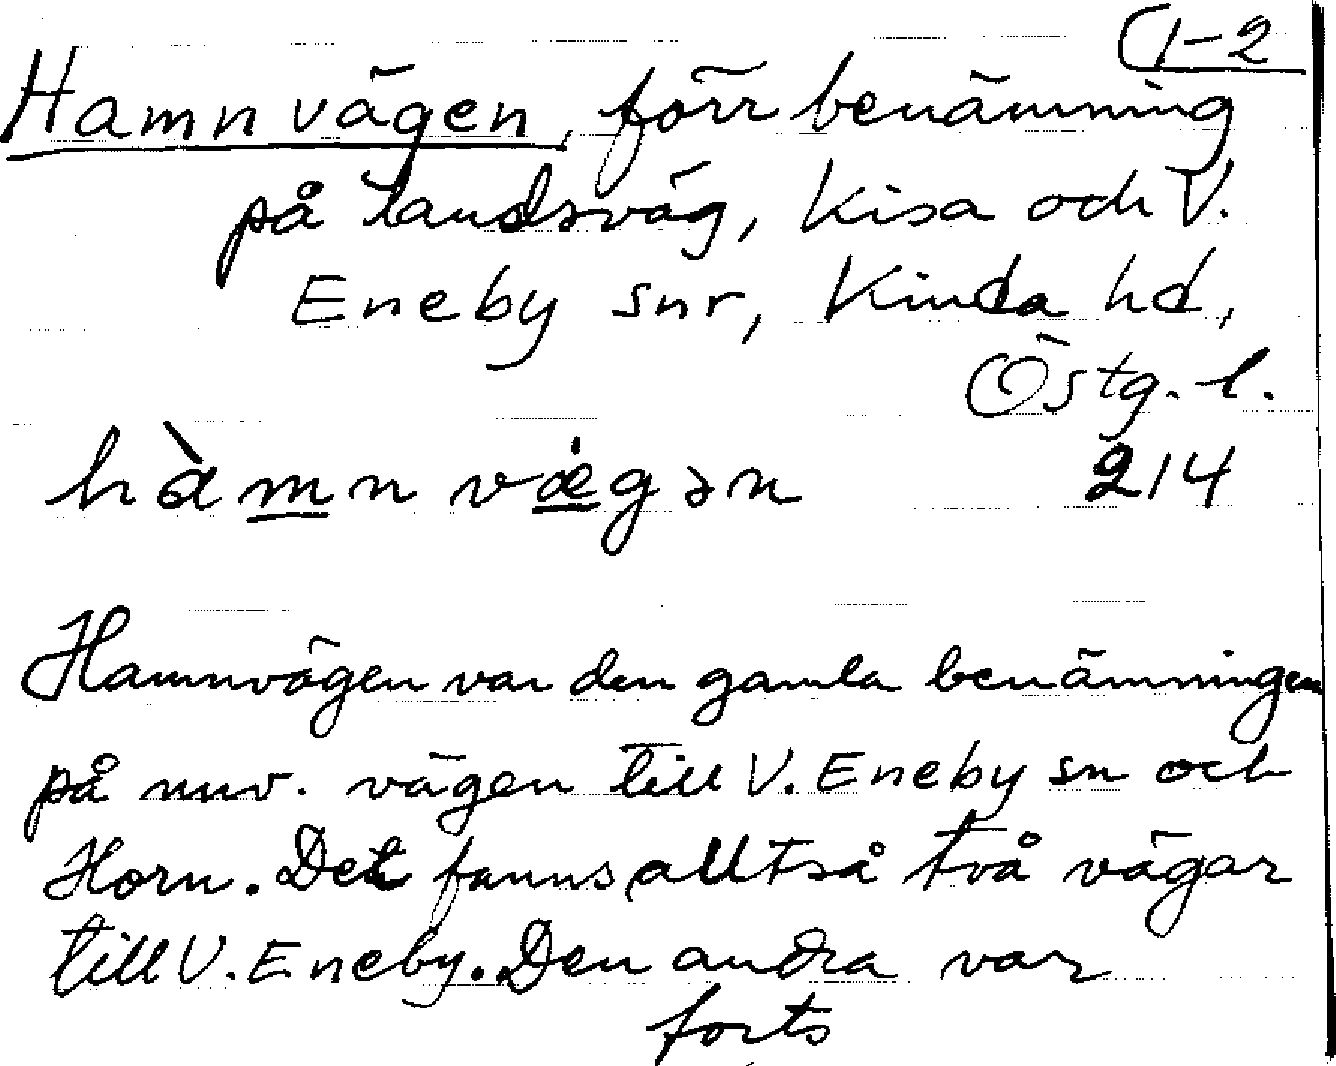 1-2
Hamnvägen, förr benämning
på landsväg, Kisa och V.
Eneby snr, Kinda hd,
Östg. l.
hàmnvægən 214
Hamnvägen var den gamla benämningen
på nuv. vägen till V. Eneby sn och
Horn. Det fanns alltså två vägar
till V. Eneby. Den andra var
forts